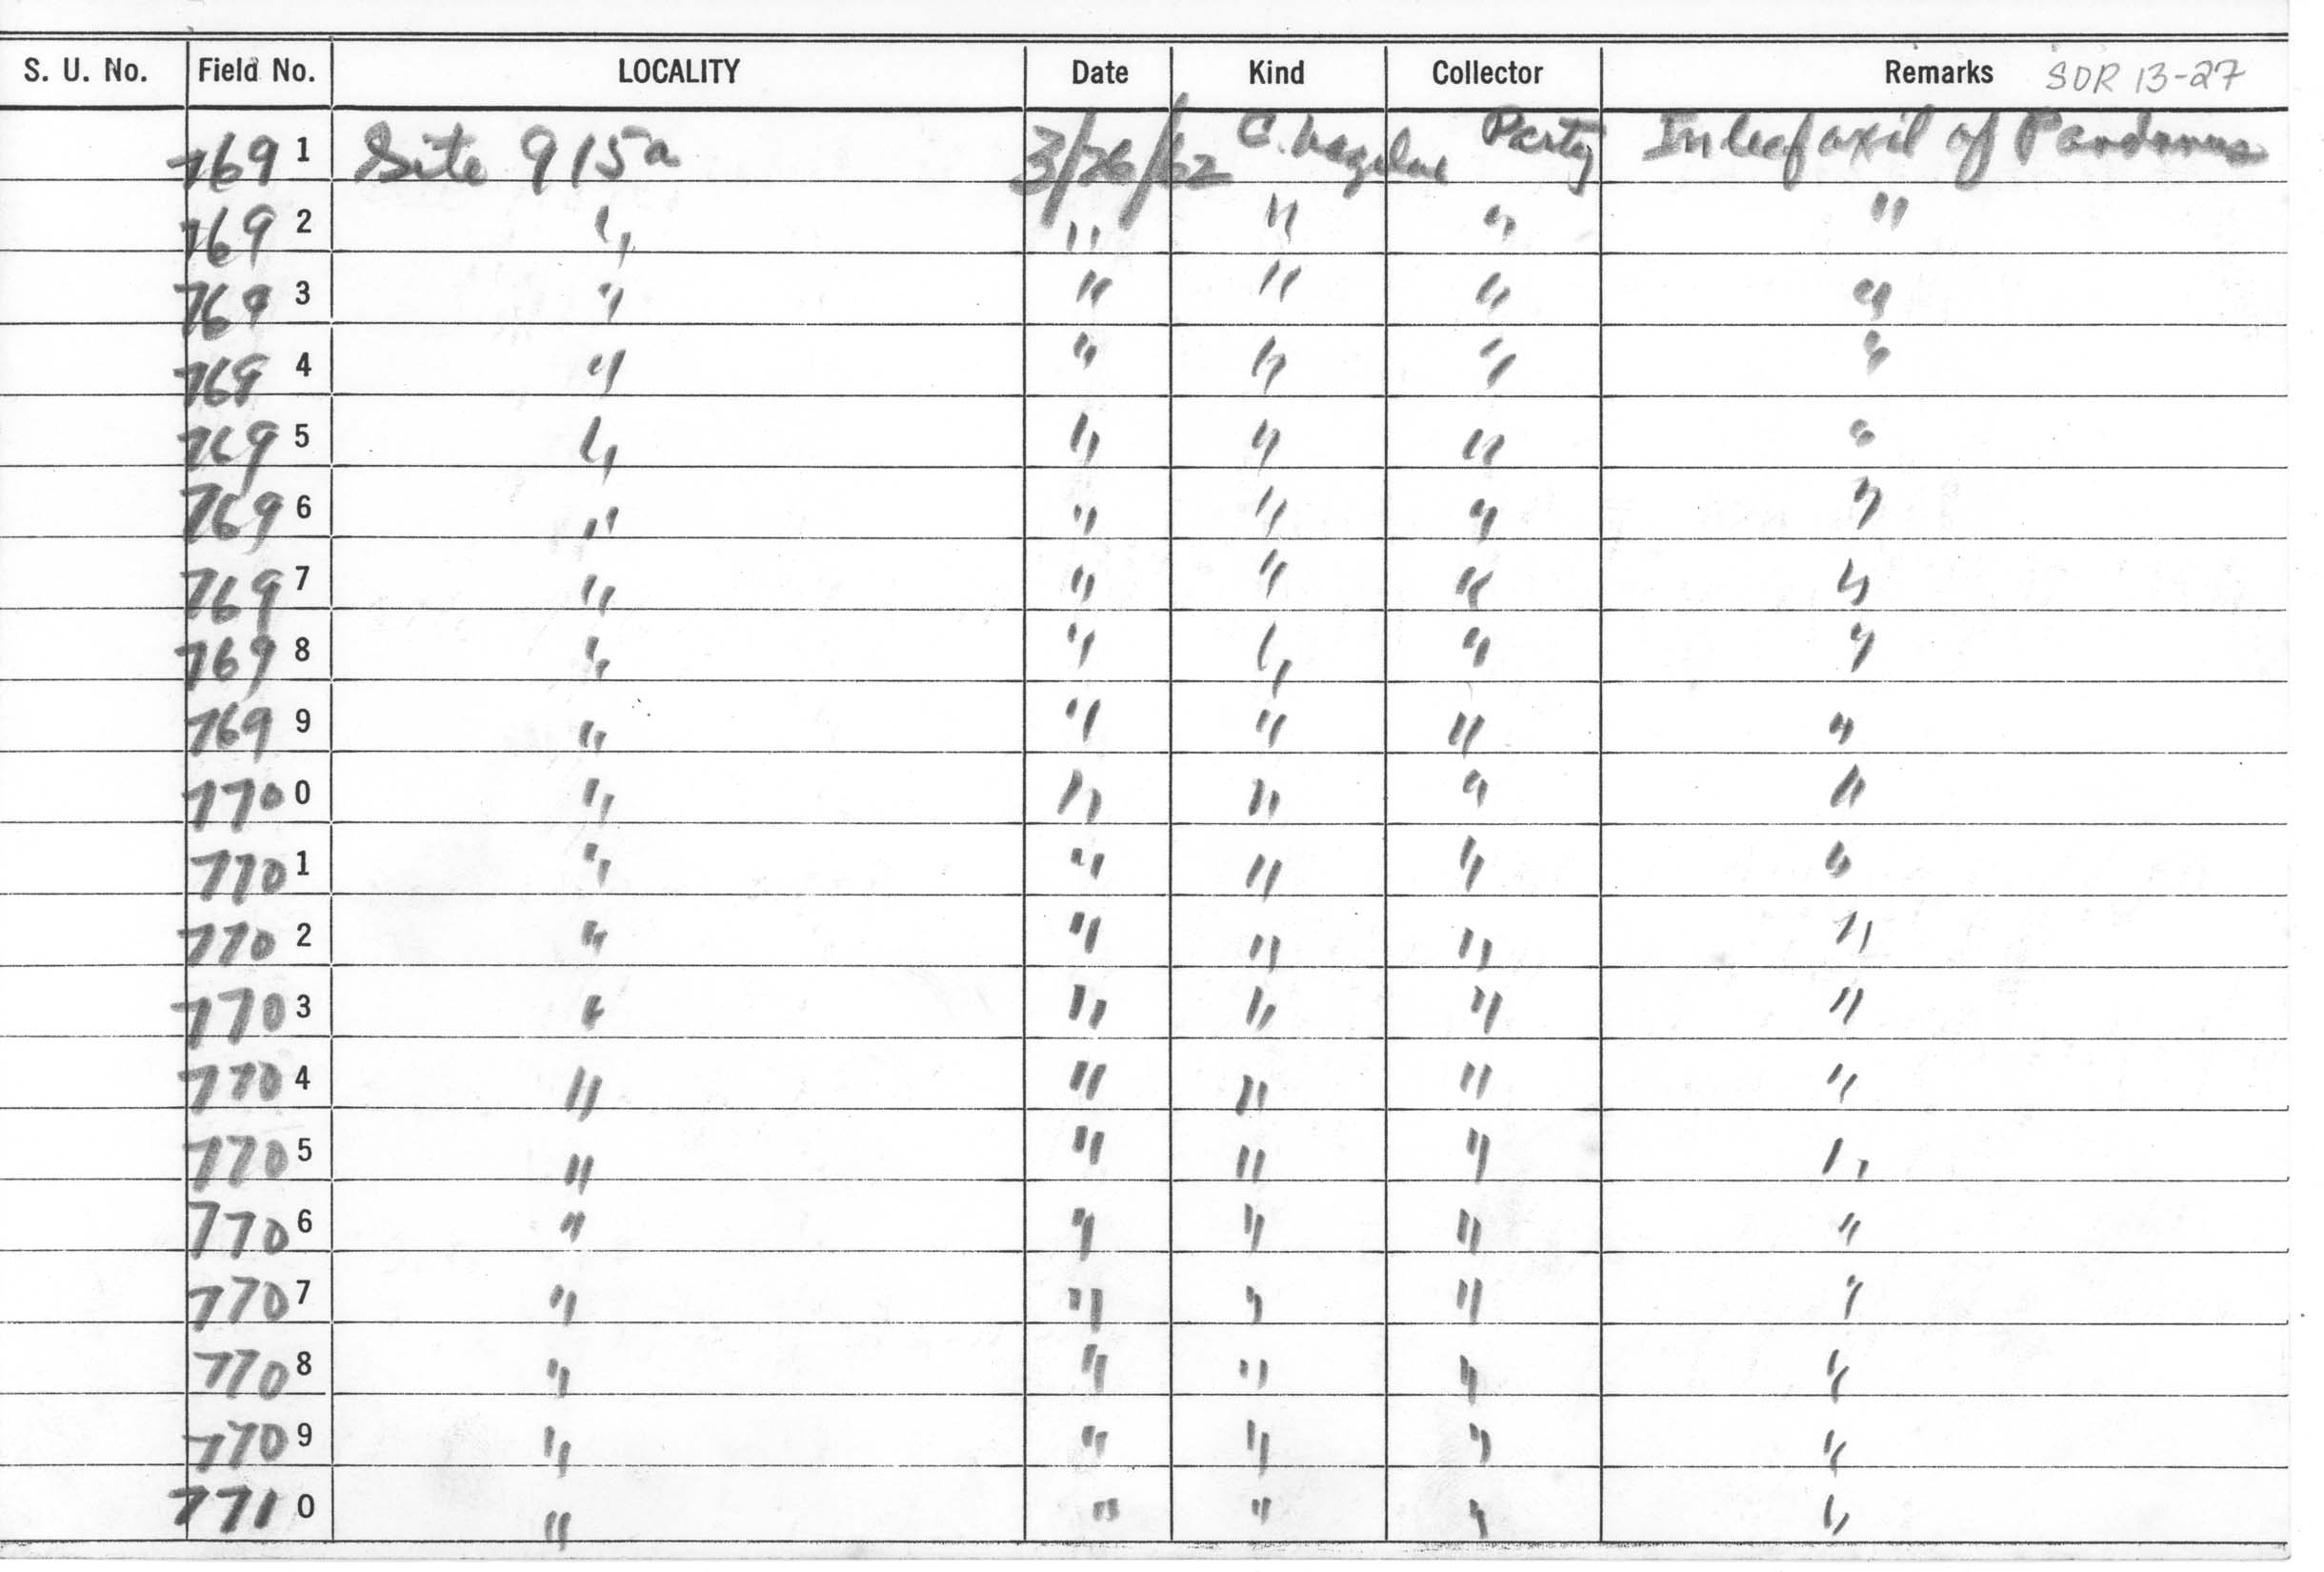 S. U. No. Field No. LOCALITY Date Kind Collector Remarks SDR 13-27
7691 Site 915a 3/26/62 C. Party In leaf axil of Pandanus
7692 " " " " "
7693 " " " " "
7694 " " " " "
7695 " " " " "
7696 " " " " "
7697 " " " " "
7698 " " " " "
7699 " " " " "
7700 " " " " "
7701 " " " " "
7702 " " " " "
7703 " " " " "
7704 " " " " "
7705 " " " " "
7706 " " " " "
7707 " " " " "
7708 " " " " "
7709 " " " " "
7710 " " " " "